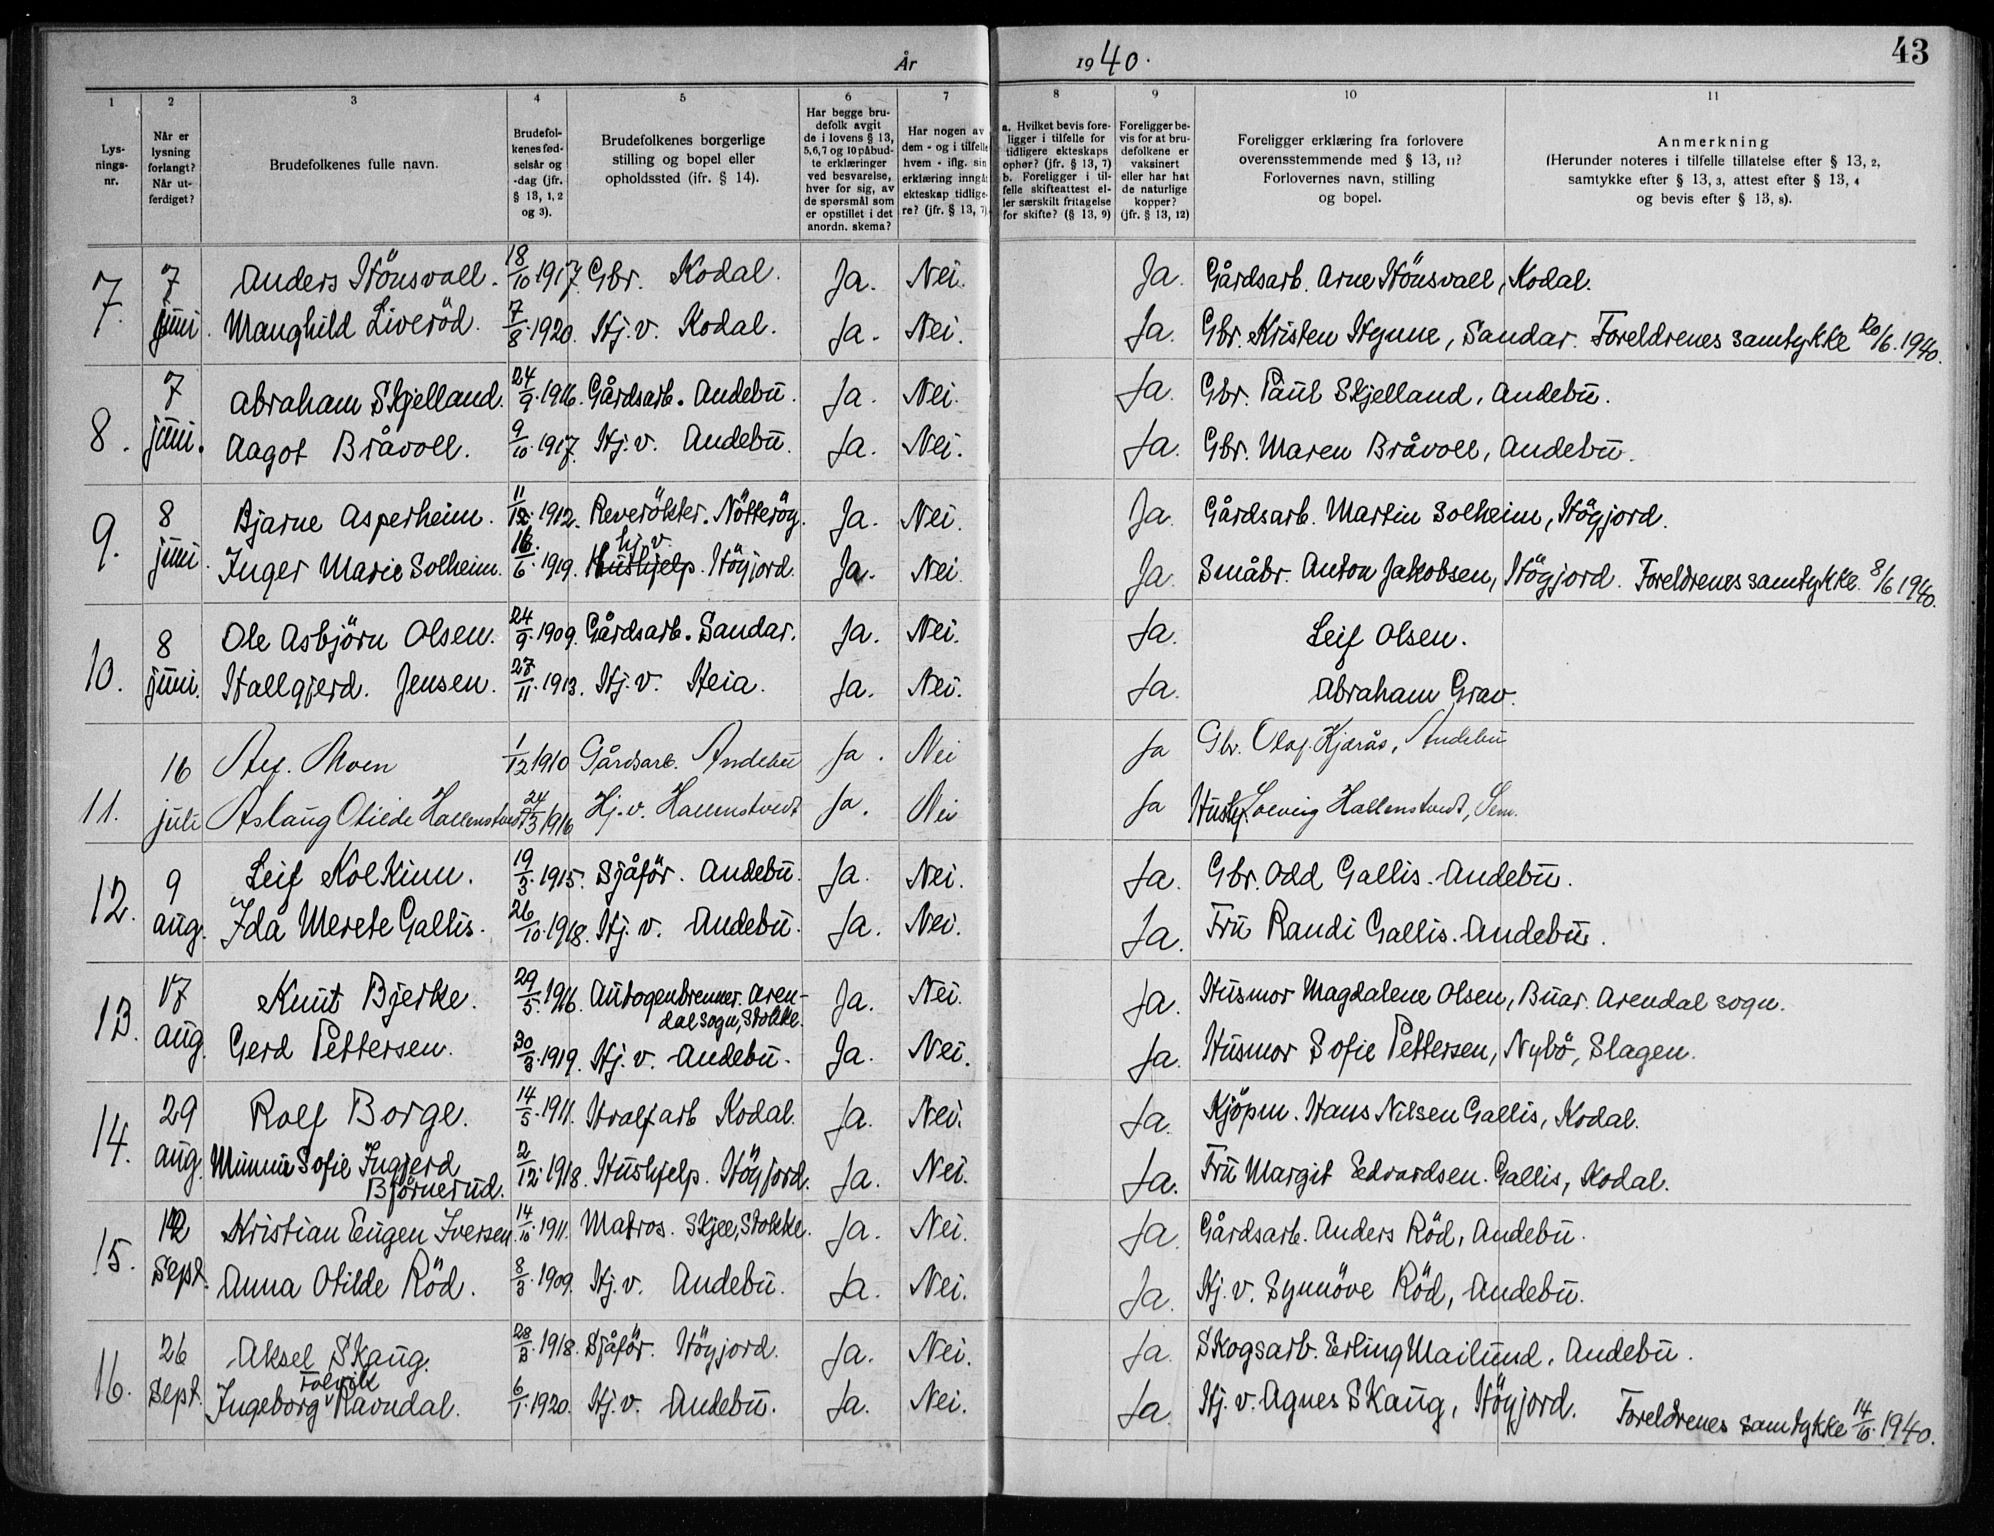 43
År 1940.
1 2 3 4 5 6 7 8 9 10 11
Lys-
nings-
nr.
Når er
lysning
forlangt?
Når ut-
ferdiget?
Brudefolkenes fulle navn.
Brudefol-
kenes fød-
selsår og
-dag (jfr.
§ 13, 1, 2
og 3).
Brudefolkenes borgerlige
stilling og bopel eller
opholdssted (jfr. § 14).
Har begge bru-
defolk avgit
de i lovens § 13,
5,6,7 og 10 påbud-
te erklæringer
ved besvarelse,
hver for sig, av
de spørsmål som
er opstillet i det
anordn. skema?
Har nogen av
dem - og i tilfelle
hvem - iflg. sin
erklæring inngåt
ekteskap tidlige-
re? (jfr. § 13, 7).
a. Hvilket bevis fore-
ligger i tilfelle for
tidligere ekteskaps
ophør? (jfr. § 13, 7)
b. Foreligger i til-
felle skifteattest el-
ler særskilt fritagelse
for skifte? (§ 13, 9)
Foreligger be-
vis for at bru-
defolkene er
vaksinert
eller har hat
de naturlige
kopper?
(jfr. § 13, 12)
Foreligger erklæring fra forlovere
overensstemmende med § 13, 11?
Forlovernes navn, stilling
og bopel.
Anmerkning
(Herunder noteres i tilfelle tillatelse efter § 13, 2,
samtykke efter § 13, 3, attest efter § 13, 4
og bevis efter § 13, 8).
7. 7 Anders Hönsvall. 18/10.1917. Gbr. Kodal. Ja. Nei. Ja. Gårdsarb. Arne Hönsvall, Kodal.
juni. Manghild Liveröd. 7/8.1920. Hj.v. Kodal. Ja. Nei. Ja. Gbr. Kristen Hynne, Sandar. Foreldrenes samtykke 20/6.1940.
8. 7 Abraham Skjelland. 24/9.1916. Gårdsarb. Andebu. Ja. Nei. Ja. Gbr. Paul Skjelland, Andebu.
juni. Aagot Bråvoll. 9/10.1917. Hj.v. Andebu. Ja. Nei. Ja. Gbr. Maren Bråvoll, Andebu.
9. 8 Bjarne Asperheim. 11/12.1912. Reverökter. Nötteröy. Ja. Nei. Ja. Gårdsarb. Martin Solheim, Högjord.
hj.v.
juni. Inger Marie Solheim. 16/6.1919. Hushjelp. Högjord. Ja. Nei. Ja. Småbr. Anton Jakobsen, Högjord. Foreldrenes samtykke 8/6 1940.
10. 8 Ole Asbjörn Olsen. 24/9.1909. Gårdsarb. Sandar. Ja. Nei. Ja. Leif Olsen.
juni. Hallgjerd. Jensen. 27/11.1913. Hj.v. Heia. Ja. Nei. Ja. Abraham Grav.
11. 16 Moen 1/12 1910 Gårdsarb. Andebu Ja. Nei Ja Gbr. Olaf Kjærås, Andebu
juli Aslaug Otilde Hallenstvedt 24/3 1916 Hj.v. Hallenstvedt Ja. Nei Ja Solveig Hallenstvedt, Sem.
12. 9 Leif Kolkinn. 19/3.1915. Sjåför. Andebu. Ja. Nei. Ja. Gbr. Odd Gallis. Andebu.
aug. Ida Merete Gallis. 26/10.1918. Hj.v. Andebu. Ja. Nei. Ja. Fru Randi Gallis. Andebu.
13. 17 Knut Bjerke. 29/5.1916. Autogenbrenner. Aren-
dal sogn, Stokke. Ja. Nei. Ja. Husmor Magdalene Olsen, Buar. Arendal sogn.
aug. Gerd Pettersen. 30/3.1919. Hj.v. Andebu. Ja. Nei. Ja. Husmor Sofie Pettersen, Nybö, Slagen.
14. 29 Rolf Borge. 14/5.1911. Hvalfarb Kodal. Ja. Nei. Ja. Kjöpm. Hans Nilsen Gallis, Kodal.
aug. Minnie Sofie Ingjerd
Björnerud. 2/12.1918. Hushjelp. Högjord. Ja. Nei. Ja. Fru Margit Edvardsen. Gallis, Kodal.
15. 12 Kristian Eugen Iversen. 14/10.1911. Matros. Skjee, Stokke. Ja. Nei. Ja. Gårdsarb. Anders Röd, Andebu.
sept. Anna Otilde Röd. 8/3.1909. Hj.v. Andebu. Ja. Nei. Ja. Hj.v. Synnöve Röd, Andebu.
16. 26 Aksel Skaug. 28/3.1918. Sjåför. Högjord. Ja. Nei. Ja. Skogsarb. Erling Mailund. Andebu.
sept. Ingeborg Ravndal. 6/1.1920. Hj.v. Andebu. Ja. Nei. Ja. Hj.v. Agnes Skaug, Högjord. Foreldrenes samtykke 14/10.1940.